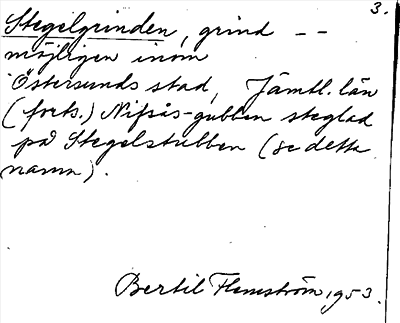 3.
Stegelgrinden, grind --
möjligen inom
Östersunds stad, Jämtl. län
(forts.) Nifsås-gubben steglad
på Stegelstubben (se detta
namn).
Bertil Flemström 1953.